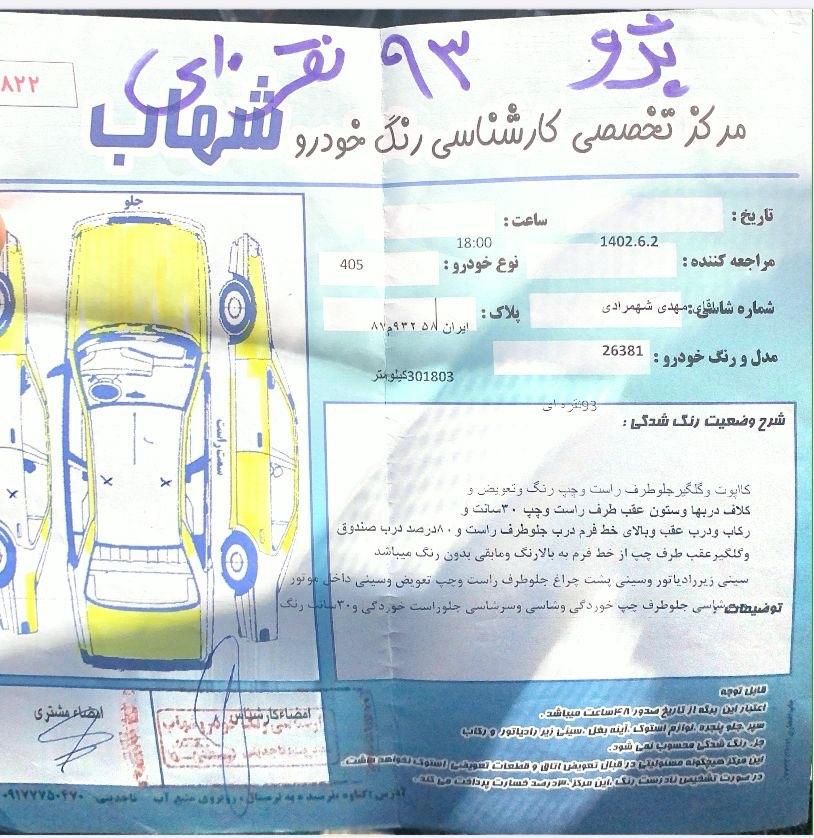 پژو ۹۳ نقره‌ای
۸۲۲
مرکز تخصصی کارشناسی رنگ خودرو شهاب
جلو
سمت راست
تاریخ :
ساعت :
1402.6.2
18:00
مراجعه کننده :
نوع خودرو :
405
شماره شاسی:
اقای مهدی شهمرادی
پلاک :
ایران ۵۸ ۹۳۲م۸۷
مدل و رنگ خودرو :
26381
301803کیلومتر
93نقره ای
شرح وضعیت رنگ شدگی :
کاپوت وگلگیرجلوطرف راست وچپ رنگ وتعویض و
کلاف دربها وستون عقب طرف راست وچپ ۳۰سانت و
رکاب ودرب عقب وبالای خط فرم درب جلوطرف راست و ۸۰درصد درب صندوق
وگلگیرعقب طرف چپ از خط فرم به بالارنگ ومابقی بدون رنگ میباشد
سینی زیررادیاتور وسینی پشت چراغ جلوطرف راست وچپ تعویض وسینی داخل موتور
توضیحات :
شاسی جلوطرف چپ خوردگی وشاسی وسرشاسی جلوراست خوردگی و۳۰سانت رنگ
قابل توجه
اعتبار این برگه از تاریخ صدور ۴۸ساعت میباشد .
سپر جلو پنجره ،لوازم استوک ،آینه بغل ،سینی زیر رادیاتور و رکاب
جزء رنگ شدگی محسوب نمی شود .
این مرکز هیچگونه مسئولیتی در قبال تعویض اتاق و قطعات تعویضی استوک نخواهد داشت .
در صورت تشخیص نادرست رنگ ،این مرکز ۳۰درصد خسارت پرداخت می کند .
امضاء کارشناس
امضاء مشتری
آدرس : گناوه نرسیده به لرستان ، روبروی منبع آب
۰۹۱۷۷۷۵۰۴۷۰